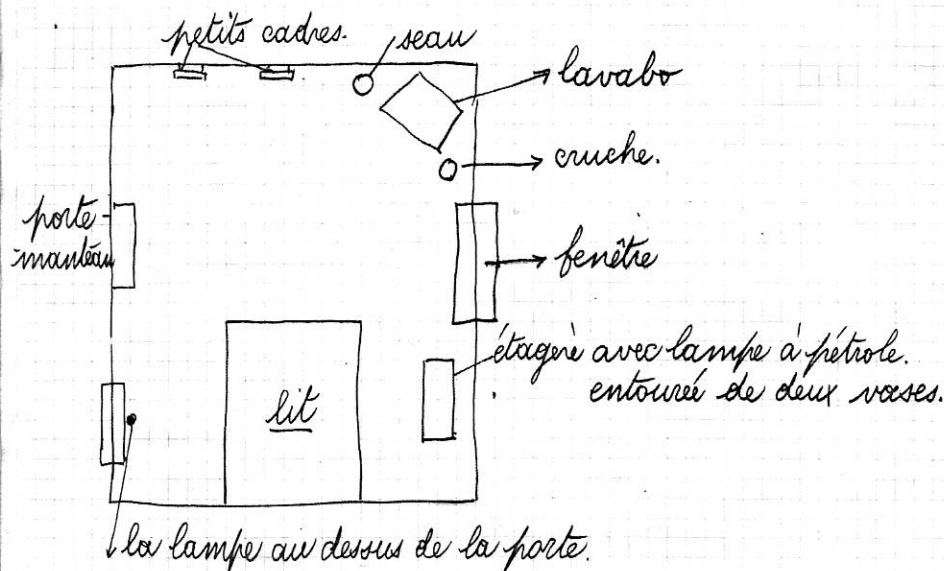 petits cadres.
seau
lavabo
cruche.
porte-
manteau
fenêtre
étagère avec lampe à pétrole.
entourée de deux vases.
lit
la lampe au dessus de la porte.